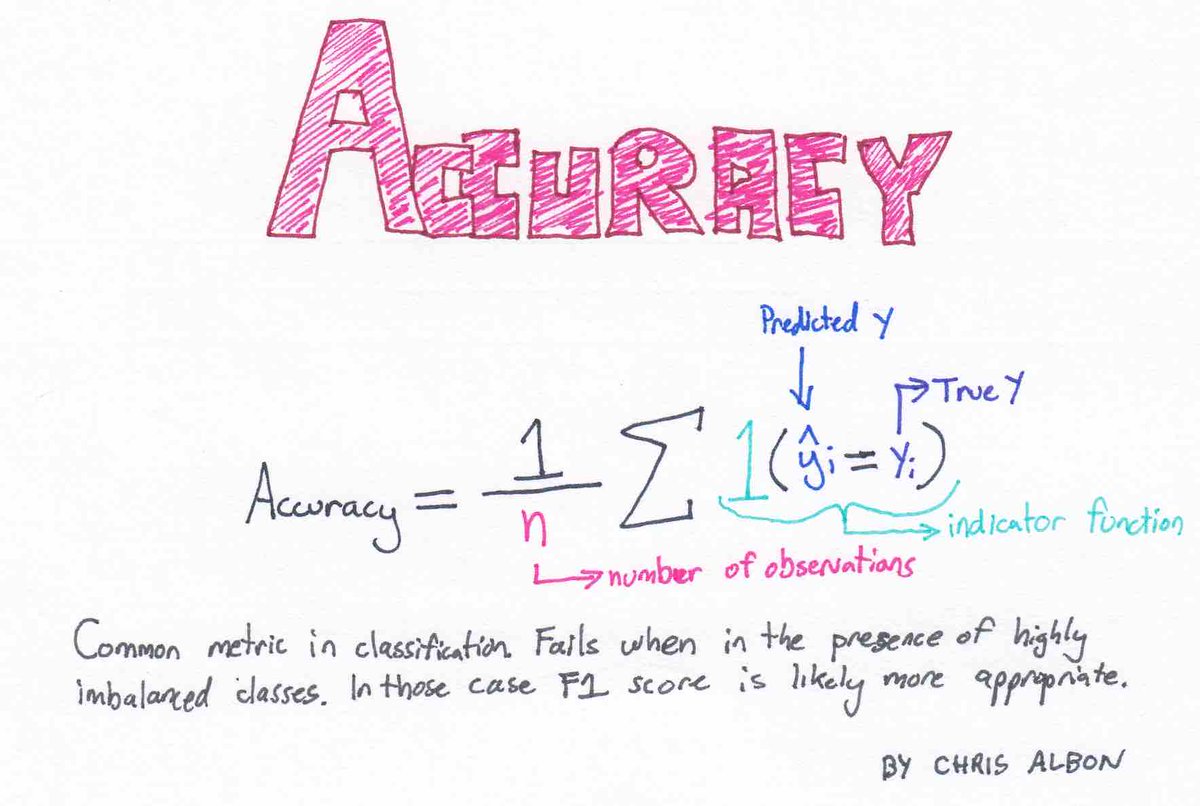 ACCURACY
Predicted y
True y
Accuracy = 1/n Σ 1(ŷi = yi)
indicator function
number of observations
Common metric in classification. Fails when in the presence of highly
imbalanced classes. In those case F1 score is likely more appropriate.
BY CHRIS ALBON